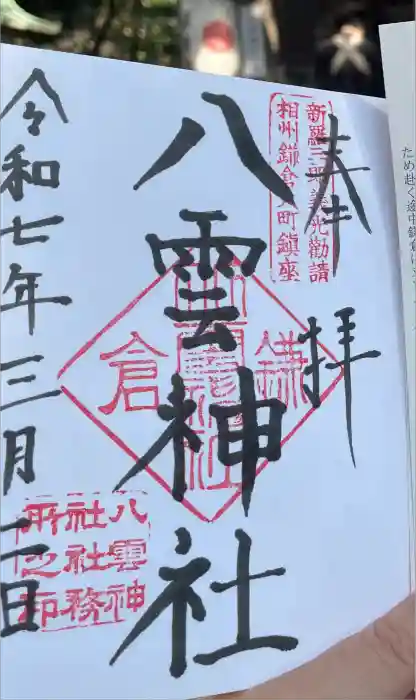 奉拝
新羅三郎義光勧請
相州鎌倉大町鎮座
八雲神社
鎌倉
令和七年三月二日
八雲神
社社務
所之印
ため赴く途中鎌倉に